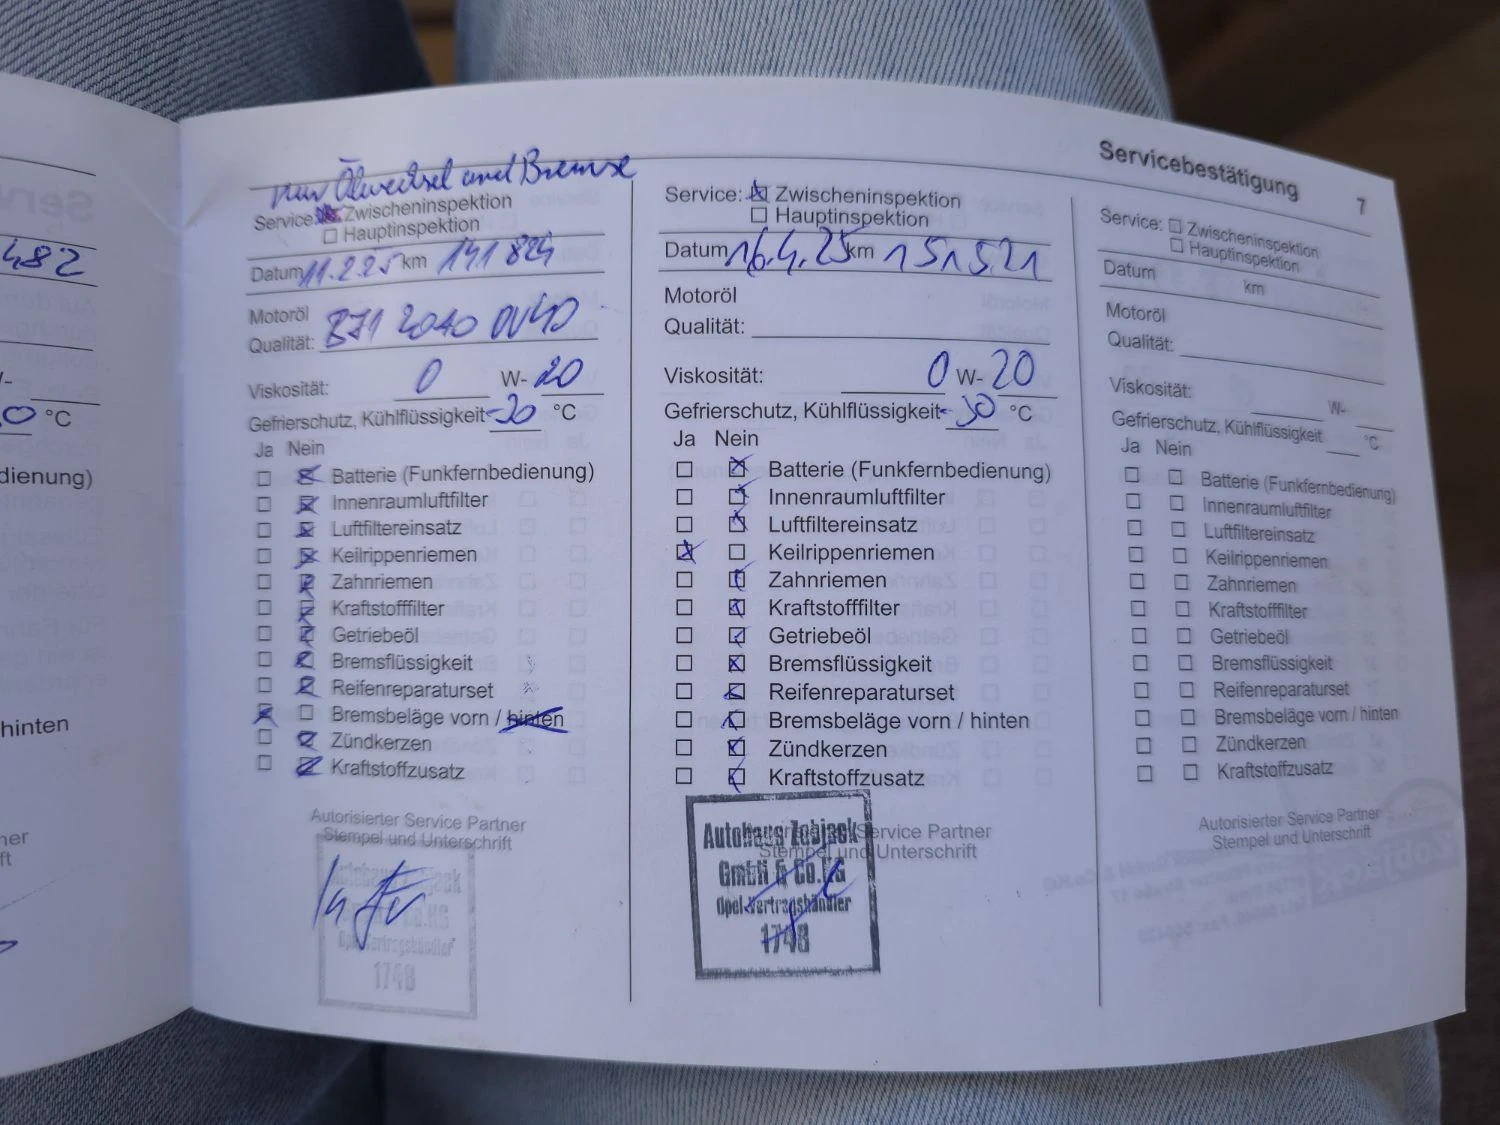 482
W-
0 °C
dienung)
hinten
Servicebestätigung 7
nur Ölwechsel und Bremse
Service: Zwischeninspektion
Hauptinspektion
Datum 11.2.25 km 141 824
Motoröl
Qualität: B71 2010 0V40
Viskosität: 0 W- 20
Gefrierschutz, Kühlflüssigkeit -30 °C
Ja Nein
Batterie (Funkfernbedienung)
Innenraumluftfilter
Luftfiltereinsatz
Keilrippenriemen
Zahnriemen
Kraftstofffilter
Getriebeöl
Bremsflüssigkeit
Reifenreparaturset
Bremsbeläge vorn / hinten
Zündkerzen
Kraftstoffzusatz
Autorisierter Service Partner
Stempel und Unterschrift
Autohaus Zobjack
GmbH & Co.KG
Opel-Vertragshändler
1748
Service: Zwischeninspektion
Hauptinspektion
Datum 16.4.25 km 151521
Motoröl
Qualität:
Viskosität: 0 W- 20
Gefrierschutz, Kühlflüssigkeit -30 °C
Ja Nein
Batterie (Funkfernbedienung)
Innenraumluftfilter
Luftfiltereinsatz
Keilrippenriemen
Zahnriemen
Kraftstofffilter
Getriebeöl
Bremsflüssigkeit
Reifenreparaturset
Bremsbeläge vorn / hinten
Zündkerzen
Kraftstoffzusatz
Autorisierter Service Partner
Stempel und Unterschrift
Autohaus Zobjack
GmbH & Co.KG
Opel-Vertragshändler
1748
Service: Zwischeninspektion
Hauptinspektion
Datum km
Motoröl
Qualität:
Viskosität: W-
Gefrierschutz, Kühlflüssigkeit °C
Ja Nein
Batterie (Funkfernbedienung)
Innenraumluftfilter
Luftfiltereinsatz
Keilrippenriemen
Zahnriemen
Kraftstofffilter
Getriebeöl
Bremsflüssigkeit
Reifenreparaturset
Bremsbeläge vorn / hinten
Zündkerzen
Kraftstoffzusatz
Autorisierter Service Partner
Stempel und Unterschrift